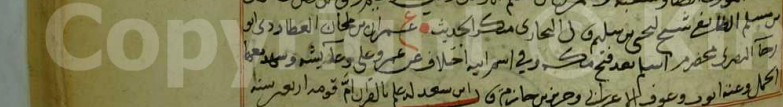 بن سليم الطائفي شيخ ليحيى بن سليم ق ال البخاري منكر الحديث ع عمران بن ملحان العطاردي ابو
رجا البصري مخضرم اسلم بعد فتح مكة وفي اسم ابيه اختلاف عن عمر وعلي وعائشة وشهد معها
الجمل وعنه ايوب وعوف الاعرابي وجرير بن حازم ق ال ابن سعد له علم بالقران ام قومه اربعين سنة
Copy